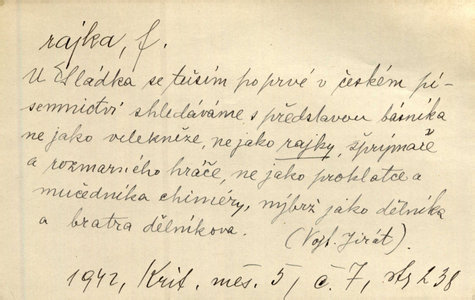 rajka, f.
U Sládka se tuším poprvé v českém pí-
semnictví shledáváme s představou básníka
ne jako velekněze, ne jako rajky, šprýmaře
a rozmarného hráče, ne jako prokletce a
mučedníka chiméry, nýbrž jako dělníka
a bratra dělníkova. (Vojt. Jirát).
1942, Krit. měs. 5, č. 7, str. 238